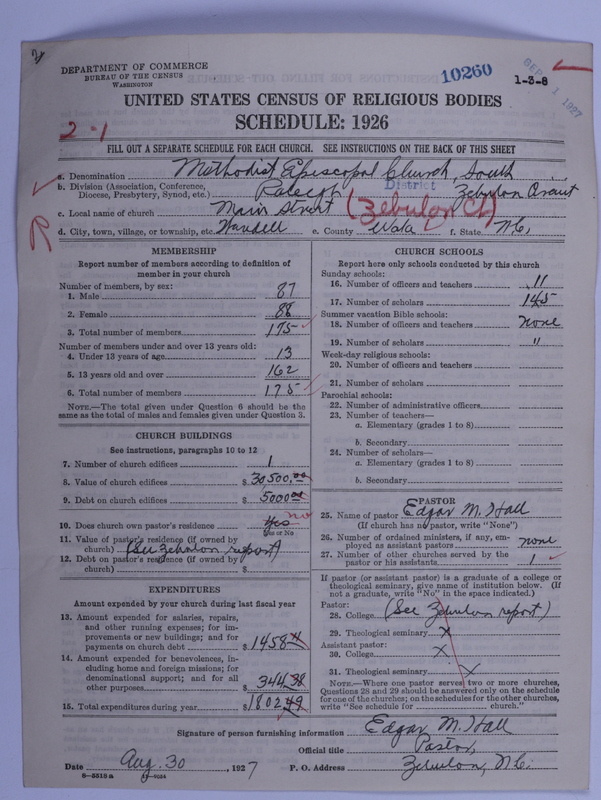 DEPARTMENT OF COMMERCE
BUREAU OF THE CENSUS
WASHINGTON
10260
1-3-8
SEP 1 1927
UNITED STATES CENSUS OF RELIGIOUS BODIES
SCHEDULE: 1926
2-1
FILL OUT A SEPARATE SCHEDULE FOR EACH CHURCH. SEE INSTRUCTIONS ON THE BACK OF THIS SHEET
a. Denomination Methodist Episcopal Church, South
b. Division (Association, Conference, Diocese, Presbytery, Synod, etc.) Raleigh District Zebulon
c. Local name of church Main Street (Zebulon Ct)
d. City, town, village, or township, etc. Wendell e. County Wake f. State N.C.
MEMBERSHIP
Report number of members according to definition of
member in your church
Number of members, by sex:
1. Male 87
2. Female 88
3. Total number of members 175
Number of members under and over 13 years old:
4. Under 13 years of age 13
5. 13 years old and over 162
6. Total number of members 175
NOTE.—The total given under Question 6 should be the
same as the total of males and females given under Question 3.
CHURCH BUILDINGS
See instructions, paragraphs 10 to 12
7. Number of church edifices 1
8. Value of church edifices $30,500.00
9. Debt on church edifices $5000.00
no
10. Does church own pastor's residence Yes
Yes or No
11. Value of pastor's residence (if owned by
church) (See Zebulon report)
12. Debt on pastor's residence (if owned by
church) $
EXPENDITURES
Amount expended by your church during last fiscal year
13. Amount expended for salaries, repairs,
and other running expenses; for im-
provements or new buildings; and for
payments on church debt $1458
14. Amount expended for benevolences, in-
cluding home and foreign missions; for
denominational support; and for all
other purposes 344.38
15. Total expenditures during year $1802.49
CHURCH SCHOOLS
Report here only schools conducted by this church
Sunday schools:
16. Number of officers and teachers 11
17. Number of scholars 145
Summer vacation Bible schools:
18. Number of officers and teachers none
19. Number of scholars "
Week-day religious schools:
20. Number of officers and teachers
21. Number of scholars
Parochial schools:
22. Number of administrative officers
23. Number of teachers—
a. Elementary (grades 1 to 8)
b. Secondary
24. Number of scholars—
a. Elementary (grades 1 to 8)
b. Secondary
PASTOR
25. Name of pastor Edgar M. Hall
(If church has no pastor, write "None")
26. Number of ordained ministers, if any, em-
ployed as assistant pastors none
27. Number of other churches served by the
pastor or his assistants 1
If pastor (or assistant pastor) is a graduate of a college or
theological seminary, give name of institution below. (If
not a graduate, write "No" in the space indicated.)
Pastor:
28. College (See Zebulon report)
29. Theological seminary X
Assistant pastor:
30. College X
31. Theological seminary X
NOTE.—Where one pastor serves two or more churches,
Questions 28 and 29 should be answered only on the schedule
for one of the churches; on the schedules for the other churches,
write "See schedule for church."
Signature of person furnishing information Edgar M. Hall
Official title Pastor,
Date Aug. 30, 1927 P. O. Address Zebulon, N.C.
8—5518a